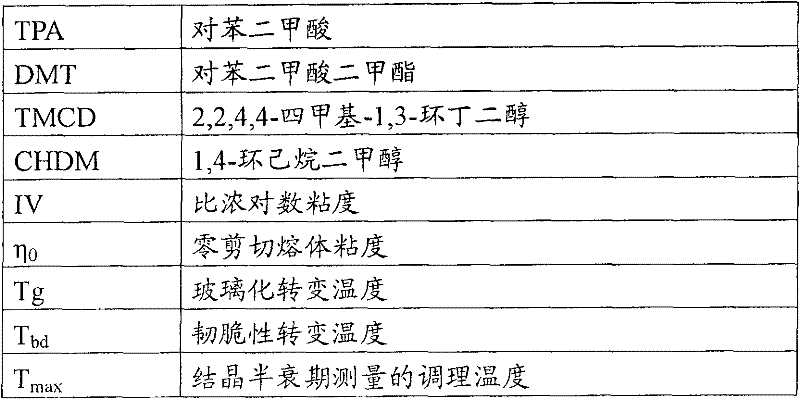 TPA 对苯二甲酸
DMT 对苯二甲酸二甲酯
TMCD 2,2,4,4-四甲基-1,3-环丁二醇
CHDM 1,4-环己烷二甲醇
IV 比浓对数粘度
η0 零剪切熔体粘度
Tg 玻璃化转变温度
Tbd 韧脆性转变温度
Tmax 结晶半衰期测量的调理温度